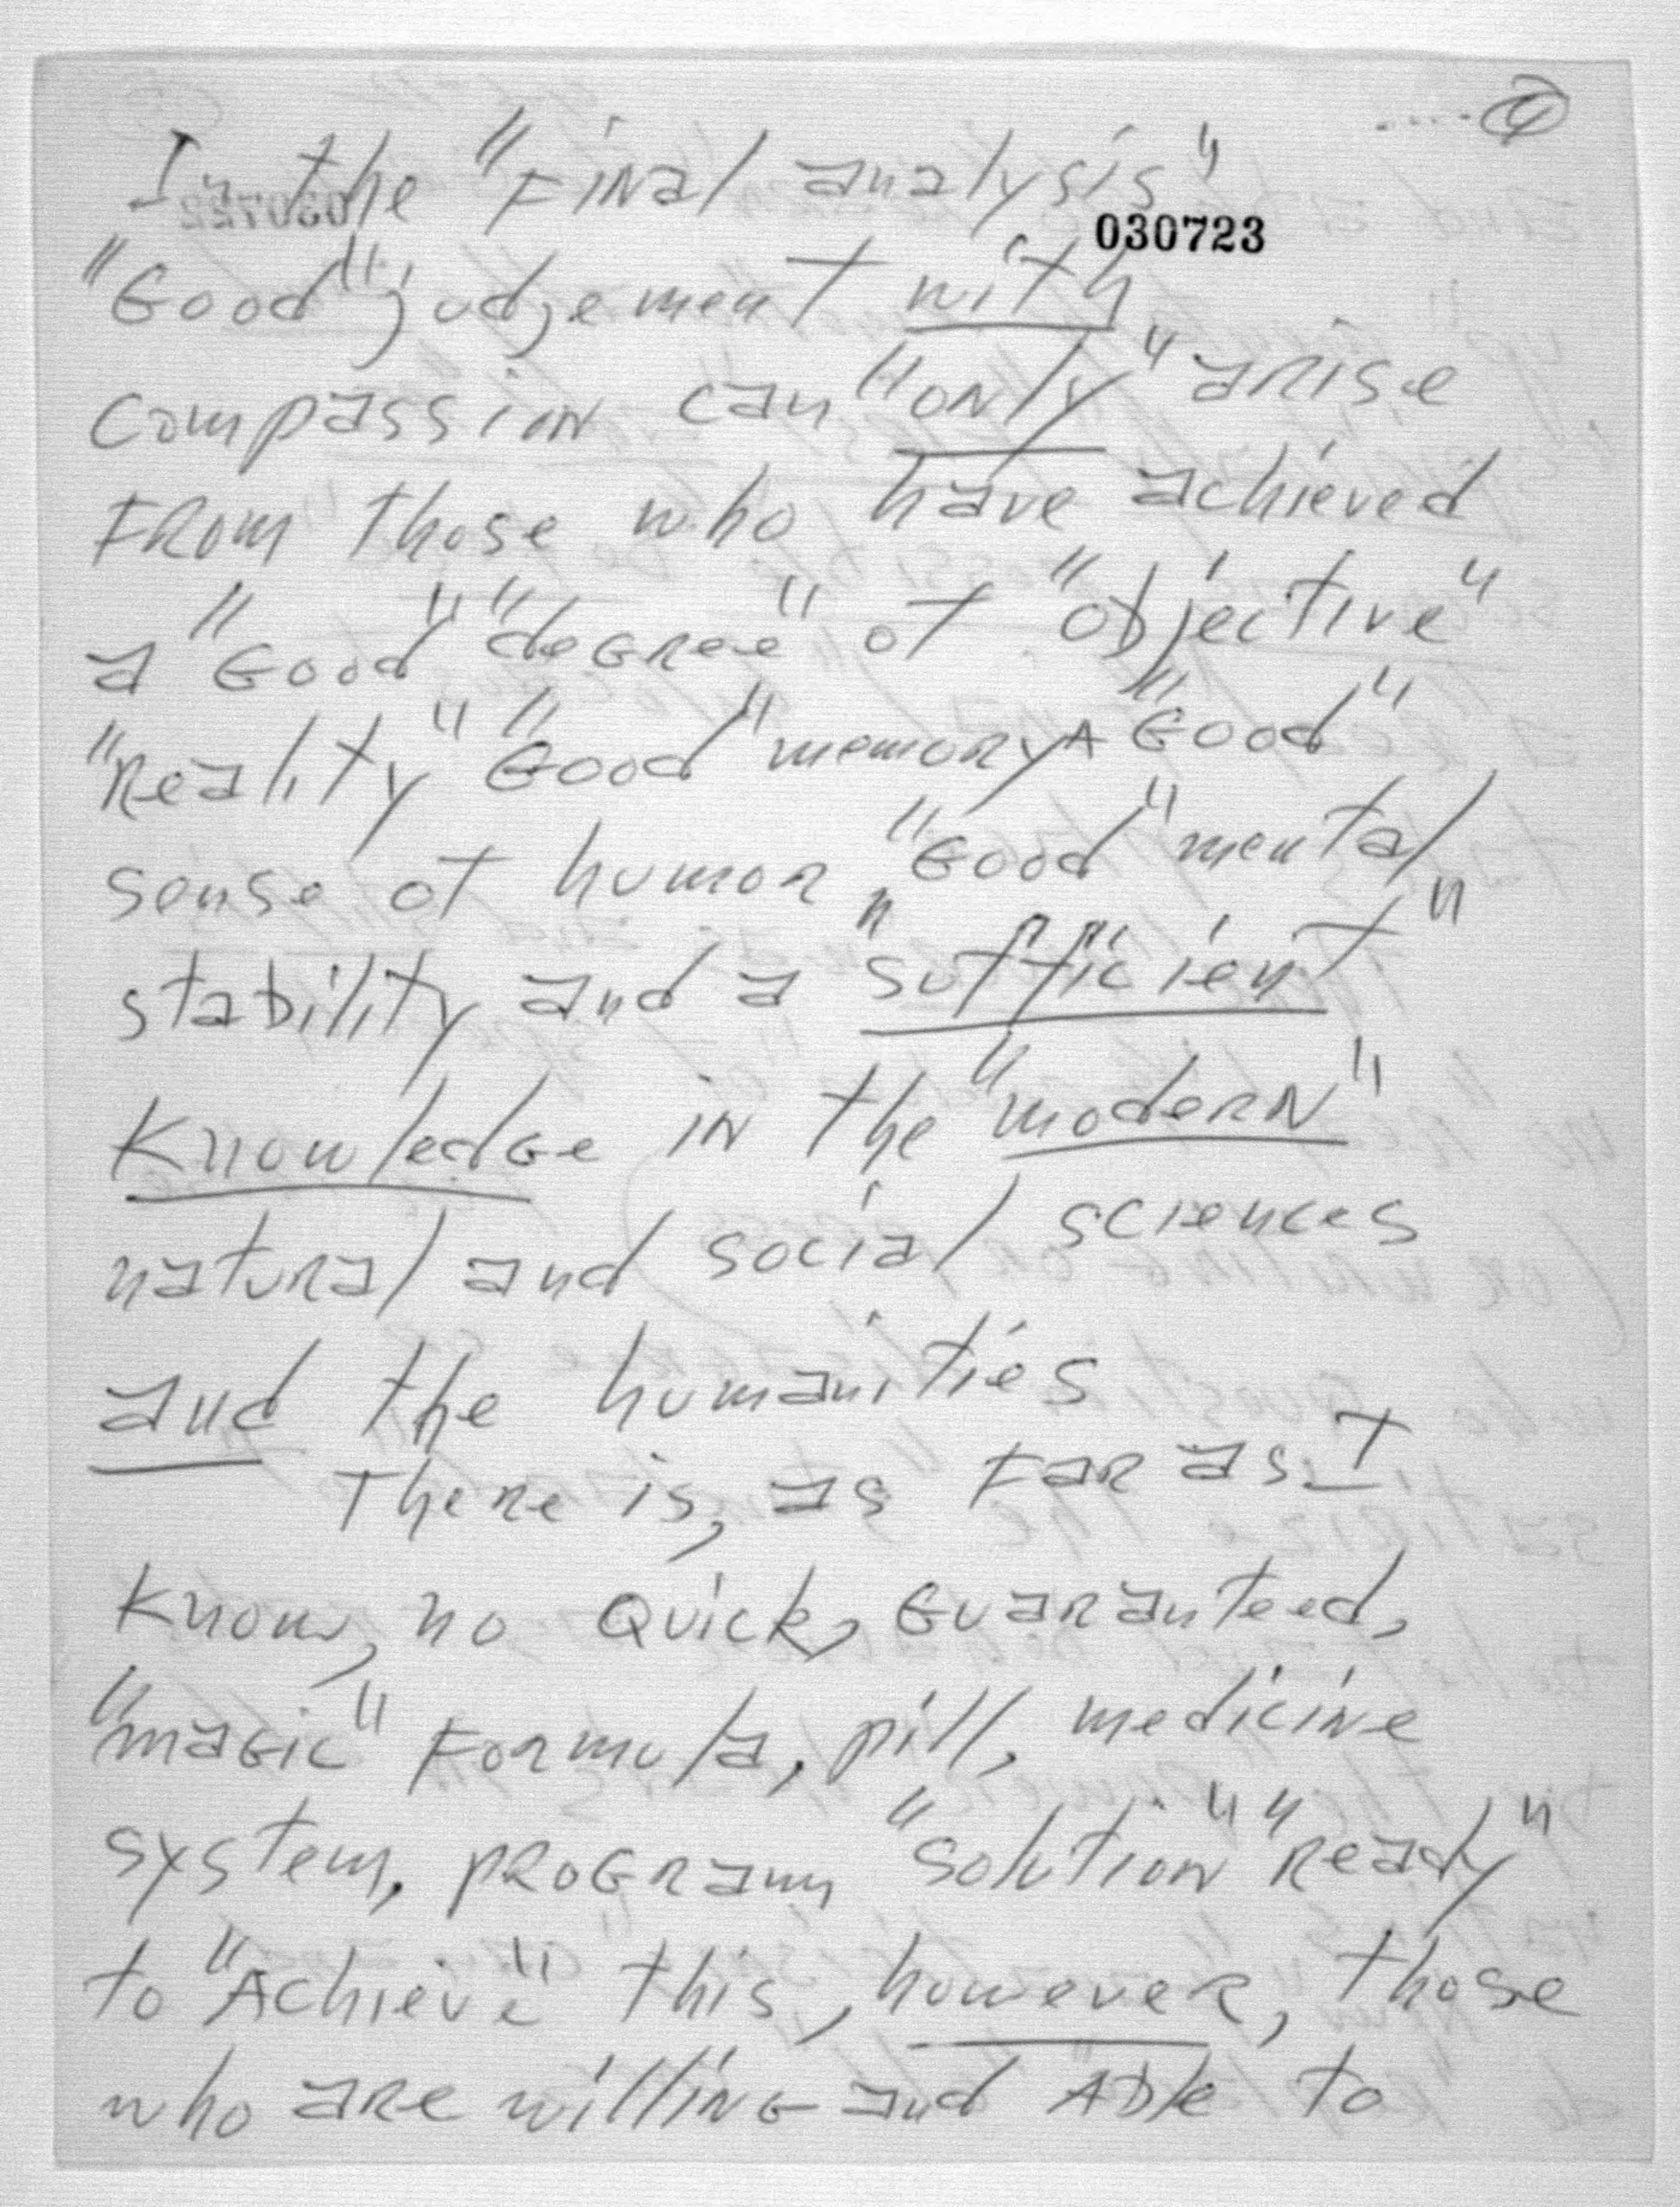 ....④
In the "Final analysis"
030723
"Good" judgement with
compassion can "only" arise
From those who have achieved
a "Good" "degree" of "objective"
"Reality" "Good" memory A "Good"
sense of humor, "Good" mental
stability and a "sufficient"
Knowledge in the "modern"
natural and social sciences
and the humanities
There is, as Far as I
Know, no Quick, Guaranteed,
"magic" Formula, pill, medicine
system, program "solution" "Ready"
to "Achieve" this, however, those
who are willing and Able to